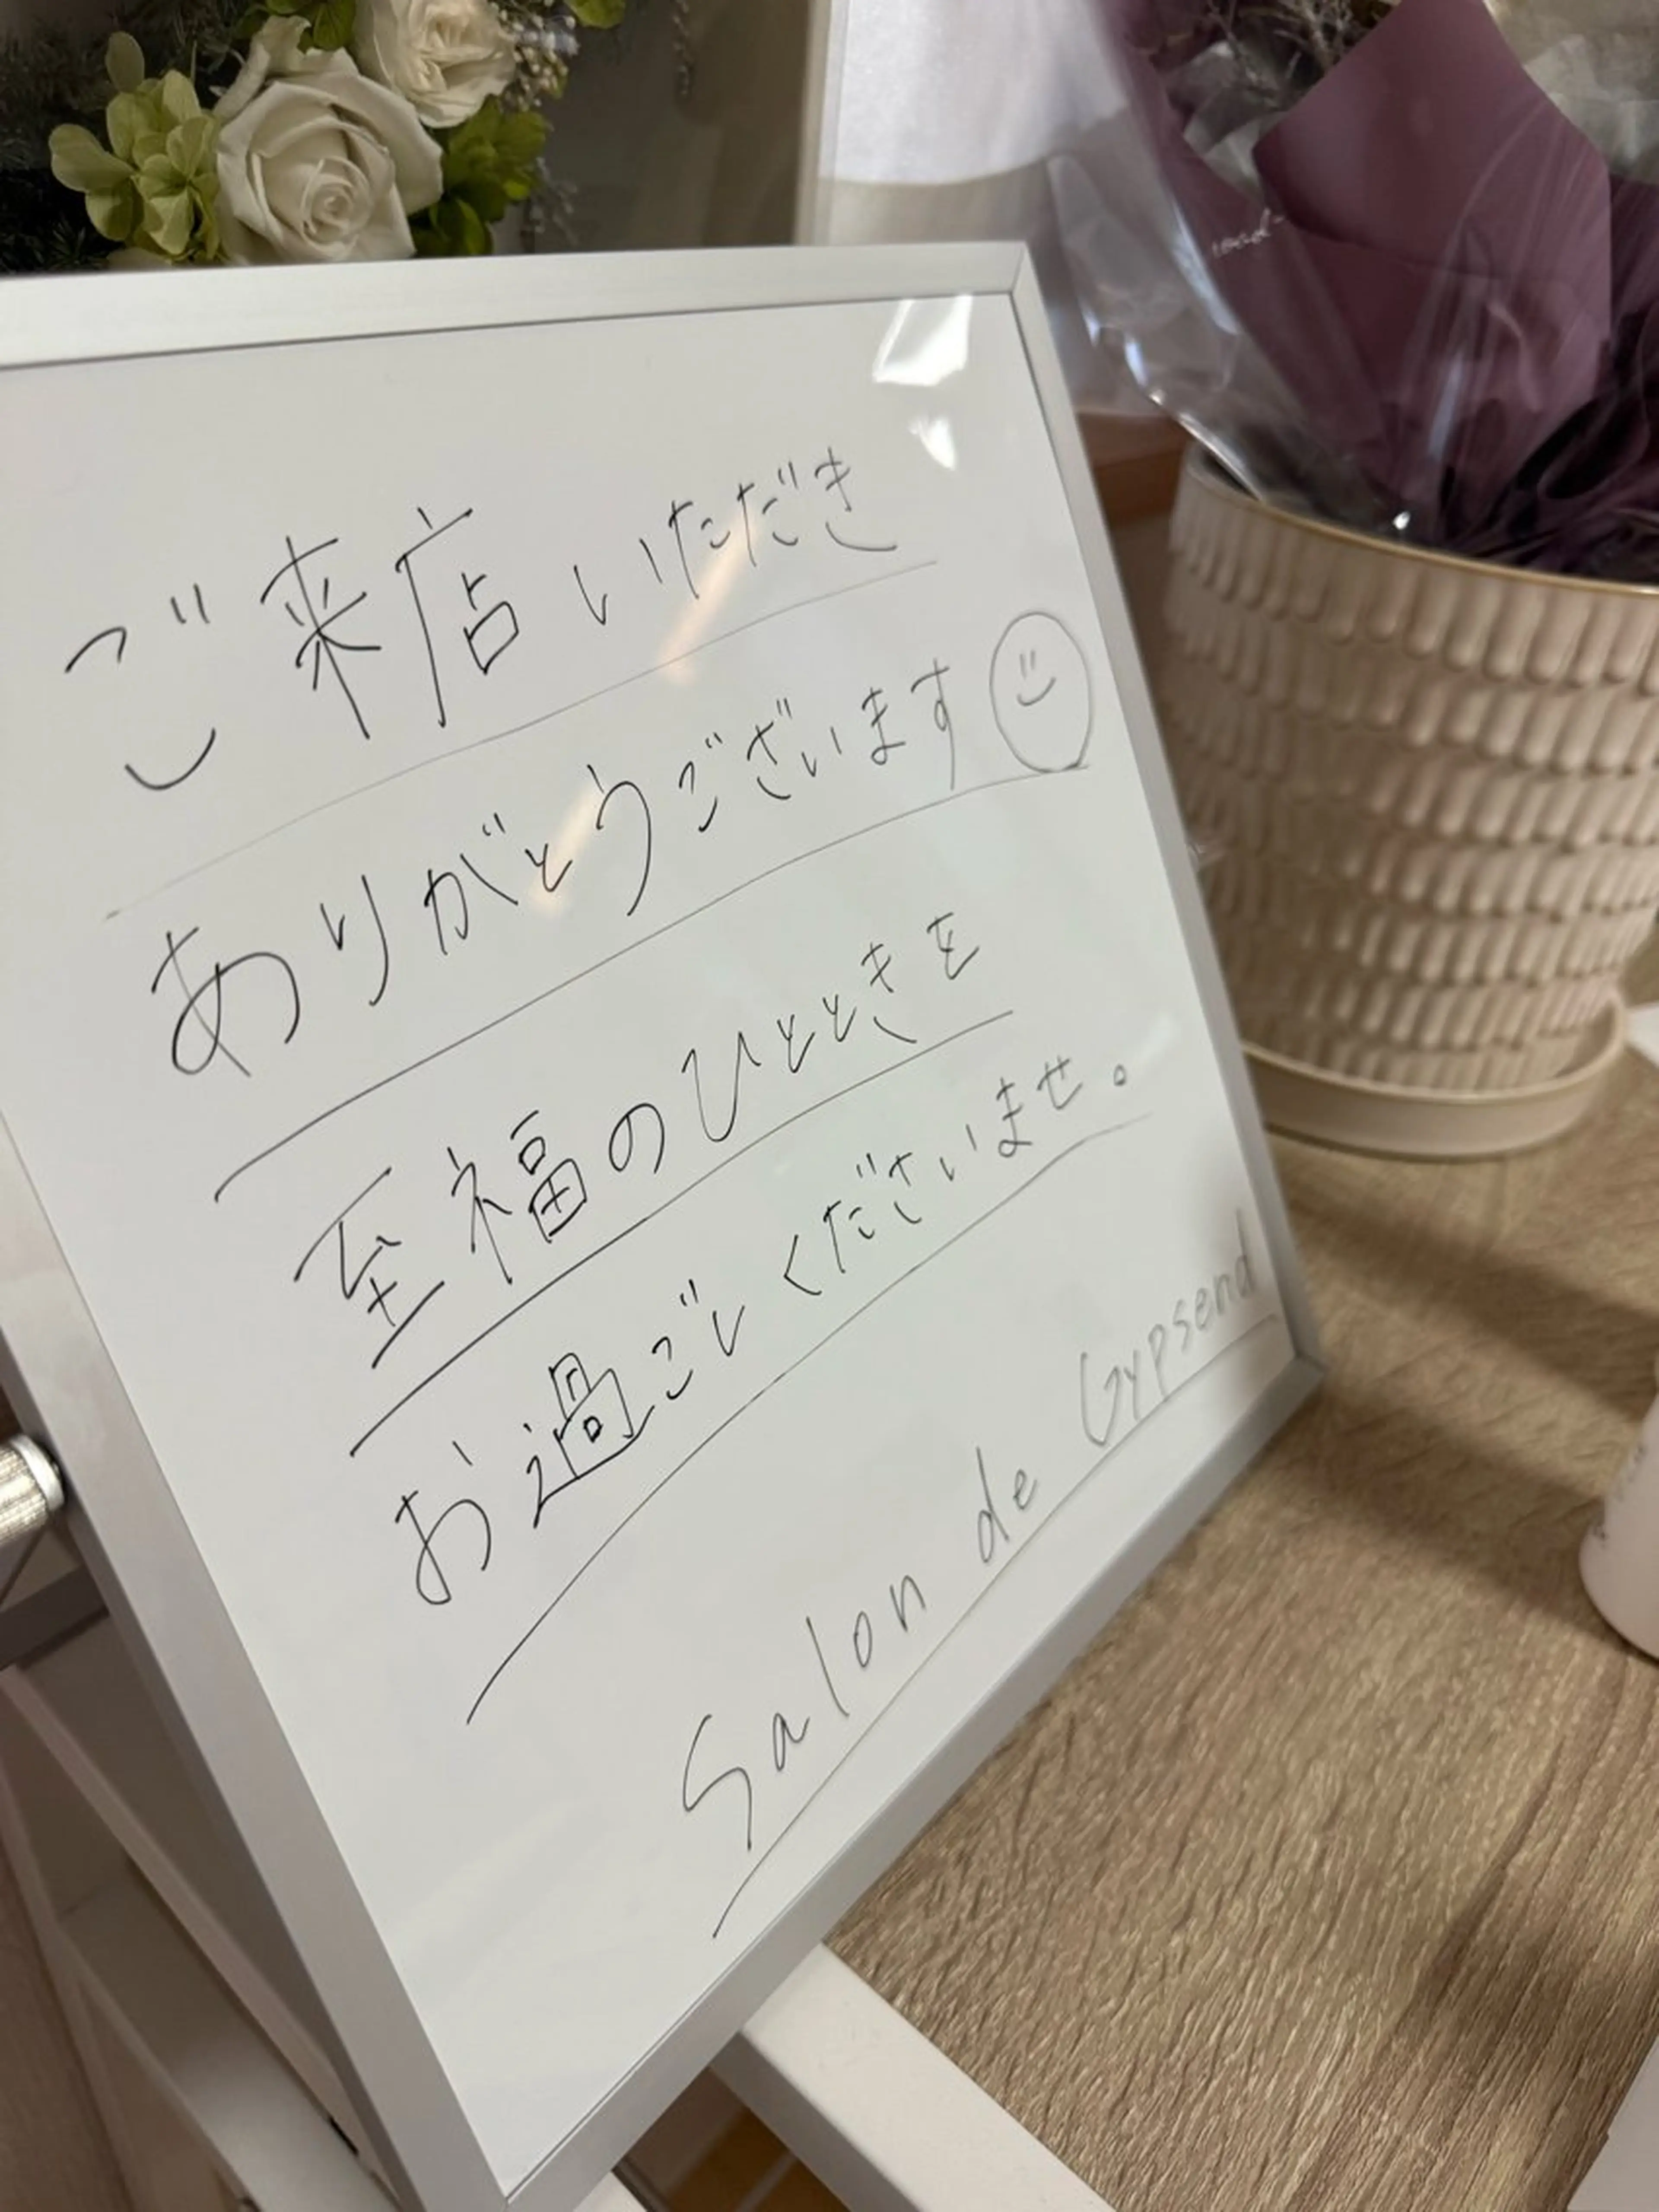 ご来店いただき
ありがとうございます
至福のひとときを
お過ごしくださいませ。
Salon de Gypsend